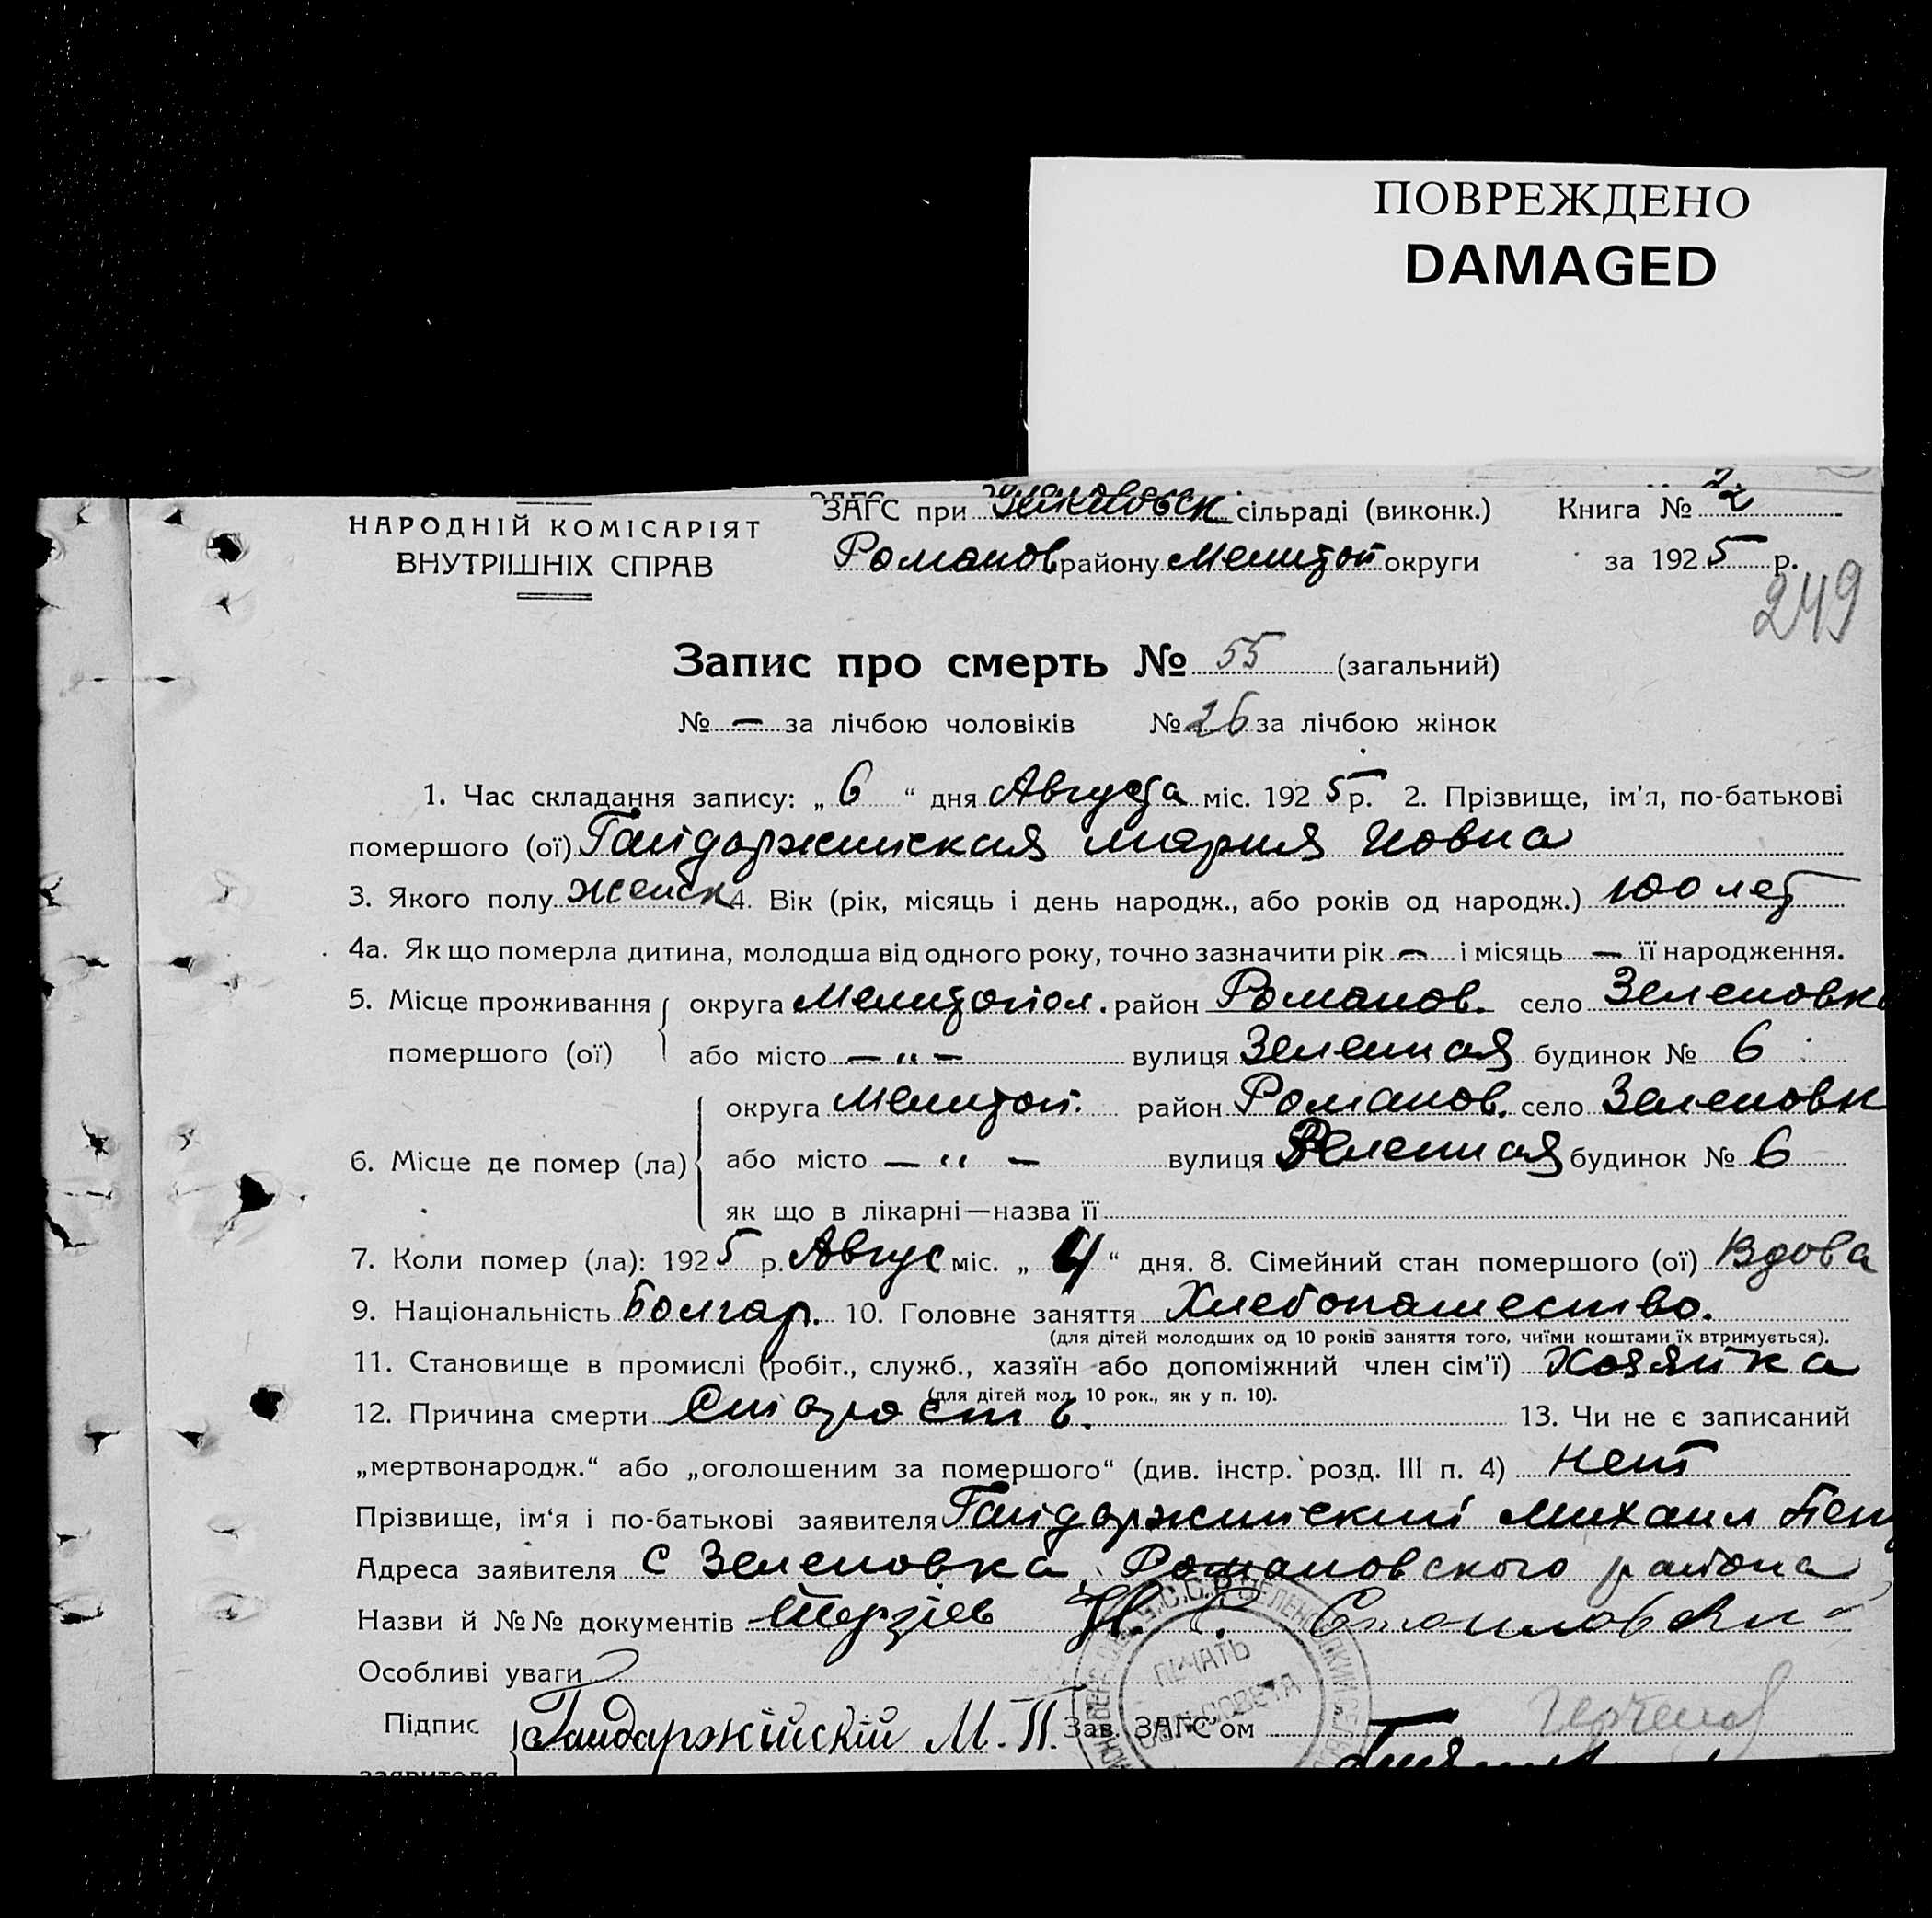 ПОВРЕЖДЕНО
DAMAGED
НАРОДНІЙ КОМІСАРІЯТ
ВНУТРІШНІХ СПРАВ
ЗАГС при сільраді (виконк.) Книга № 2
Романов району Мелитоп округи за 1925 р.
249
Запис про смерть № 55 (загальний)
№ — за лічбою чоловіків № 26 за лічбою жінок
1. Час складання запису: „ 6 “ дня Августа міс. 1925 р. 2. Прізвище, ім’я, по-батькові
помершого (ої) Гайдаржийская Мария Иовна
3. Якого полу женск 4. Вік (рік, місяць і день народж., або років од народж.) 100 лет
4а. Як що померла дитина, молодша від одного року, точно зазначити рік — і місяць — її народження.
5. Місце проживання округа Мелитопол. район Романов. село Зеленовка
помершого (ої) або місто — „ — вулиця Зеленная будинок № 6
округа Мелитоп. район Романов. село Зеленовк
6. Місце де помер (ла) або місто — „ — вулиця Зеленная будинок № 6
як що в лікарні—назва її
7. Коли помер (ла): 1925 р. Авгус міс. „ 4 “ дня. 8. Сімейний стан помершого (ої) Вдова
9. Національність Болгар. 10. Головне заняття Хлебопашество.
(для дітей молодших од 10 років заняття того, чиїми коштами їх втримується).
11. Становище в промислі (робіт., служб., хазяїн або допоміжний член сім’ї) Хозяйка
(для дітей мол. 10 рок., як у п. 10).
12. Причина смерти Старость. 13. Чи не є записаний
„мертвонародж.“ або „оголошеним за помершого“ (див. інстр. розд. III п. 4) Нет
Прізвище, ім‘я і по-батькові заявителя Гайдаржийский Михаил Пет
Адреса заявителя С Зеленовка, Романовского района
Назви й №№ документів
Особливі уваги
Підпис Гайдаржійскій М. П. Зав. ЗАГС’ом
заявителя
ПЕЧАТЬ
СЕЛЬСОВЕТА